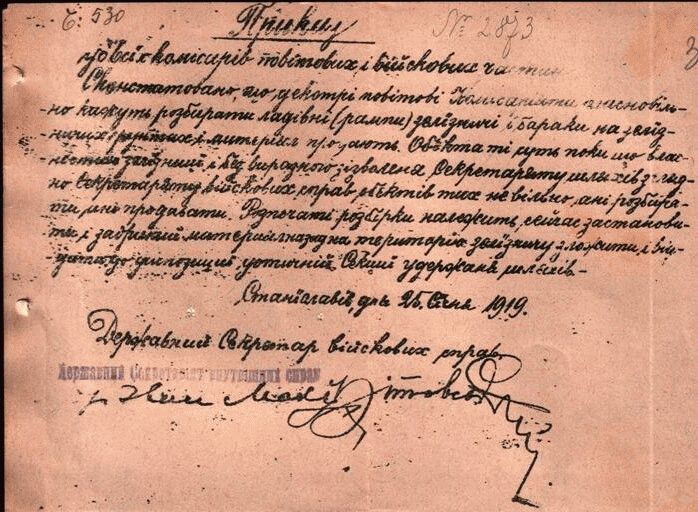 Ч: 530
№ 2873
Приказ
до всіх комісарів повітових, і військових частин
Сконстатовано, що декотрі повітові Комісаріяти самовіль-
но кажуть розбирати ладівні (рампи) зелізничі і бараки на зеліз-
ничих ґрунтах і матеріял продають. Обєкта ті суть поки що влас-
ностию зелізниці і без виразного дізволеня Секретаряту шляхів згляд-
но Секретаряту військових справ обєктів тих не вільно, ані розбира-
ти, ані продавати. Розпочаті розбірки належить сейчас застанови-
ти, і забраний матеріял назад на територію зелізниці зложити, і
до диспозициї Секциї удержаня шляхів.-
Станіславів, дня 25. Січня 1919.
Державний Секретар військових справ
Державний Секретаріят внутрішних справ